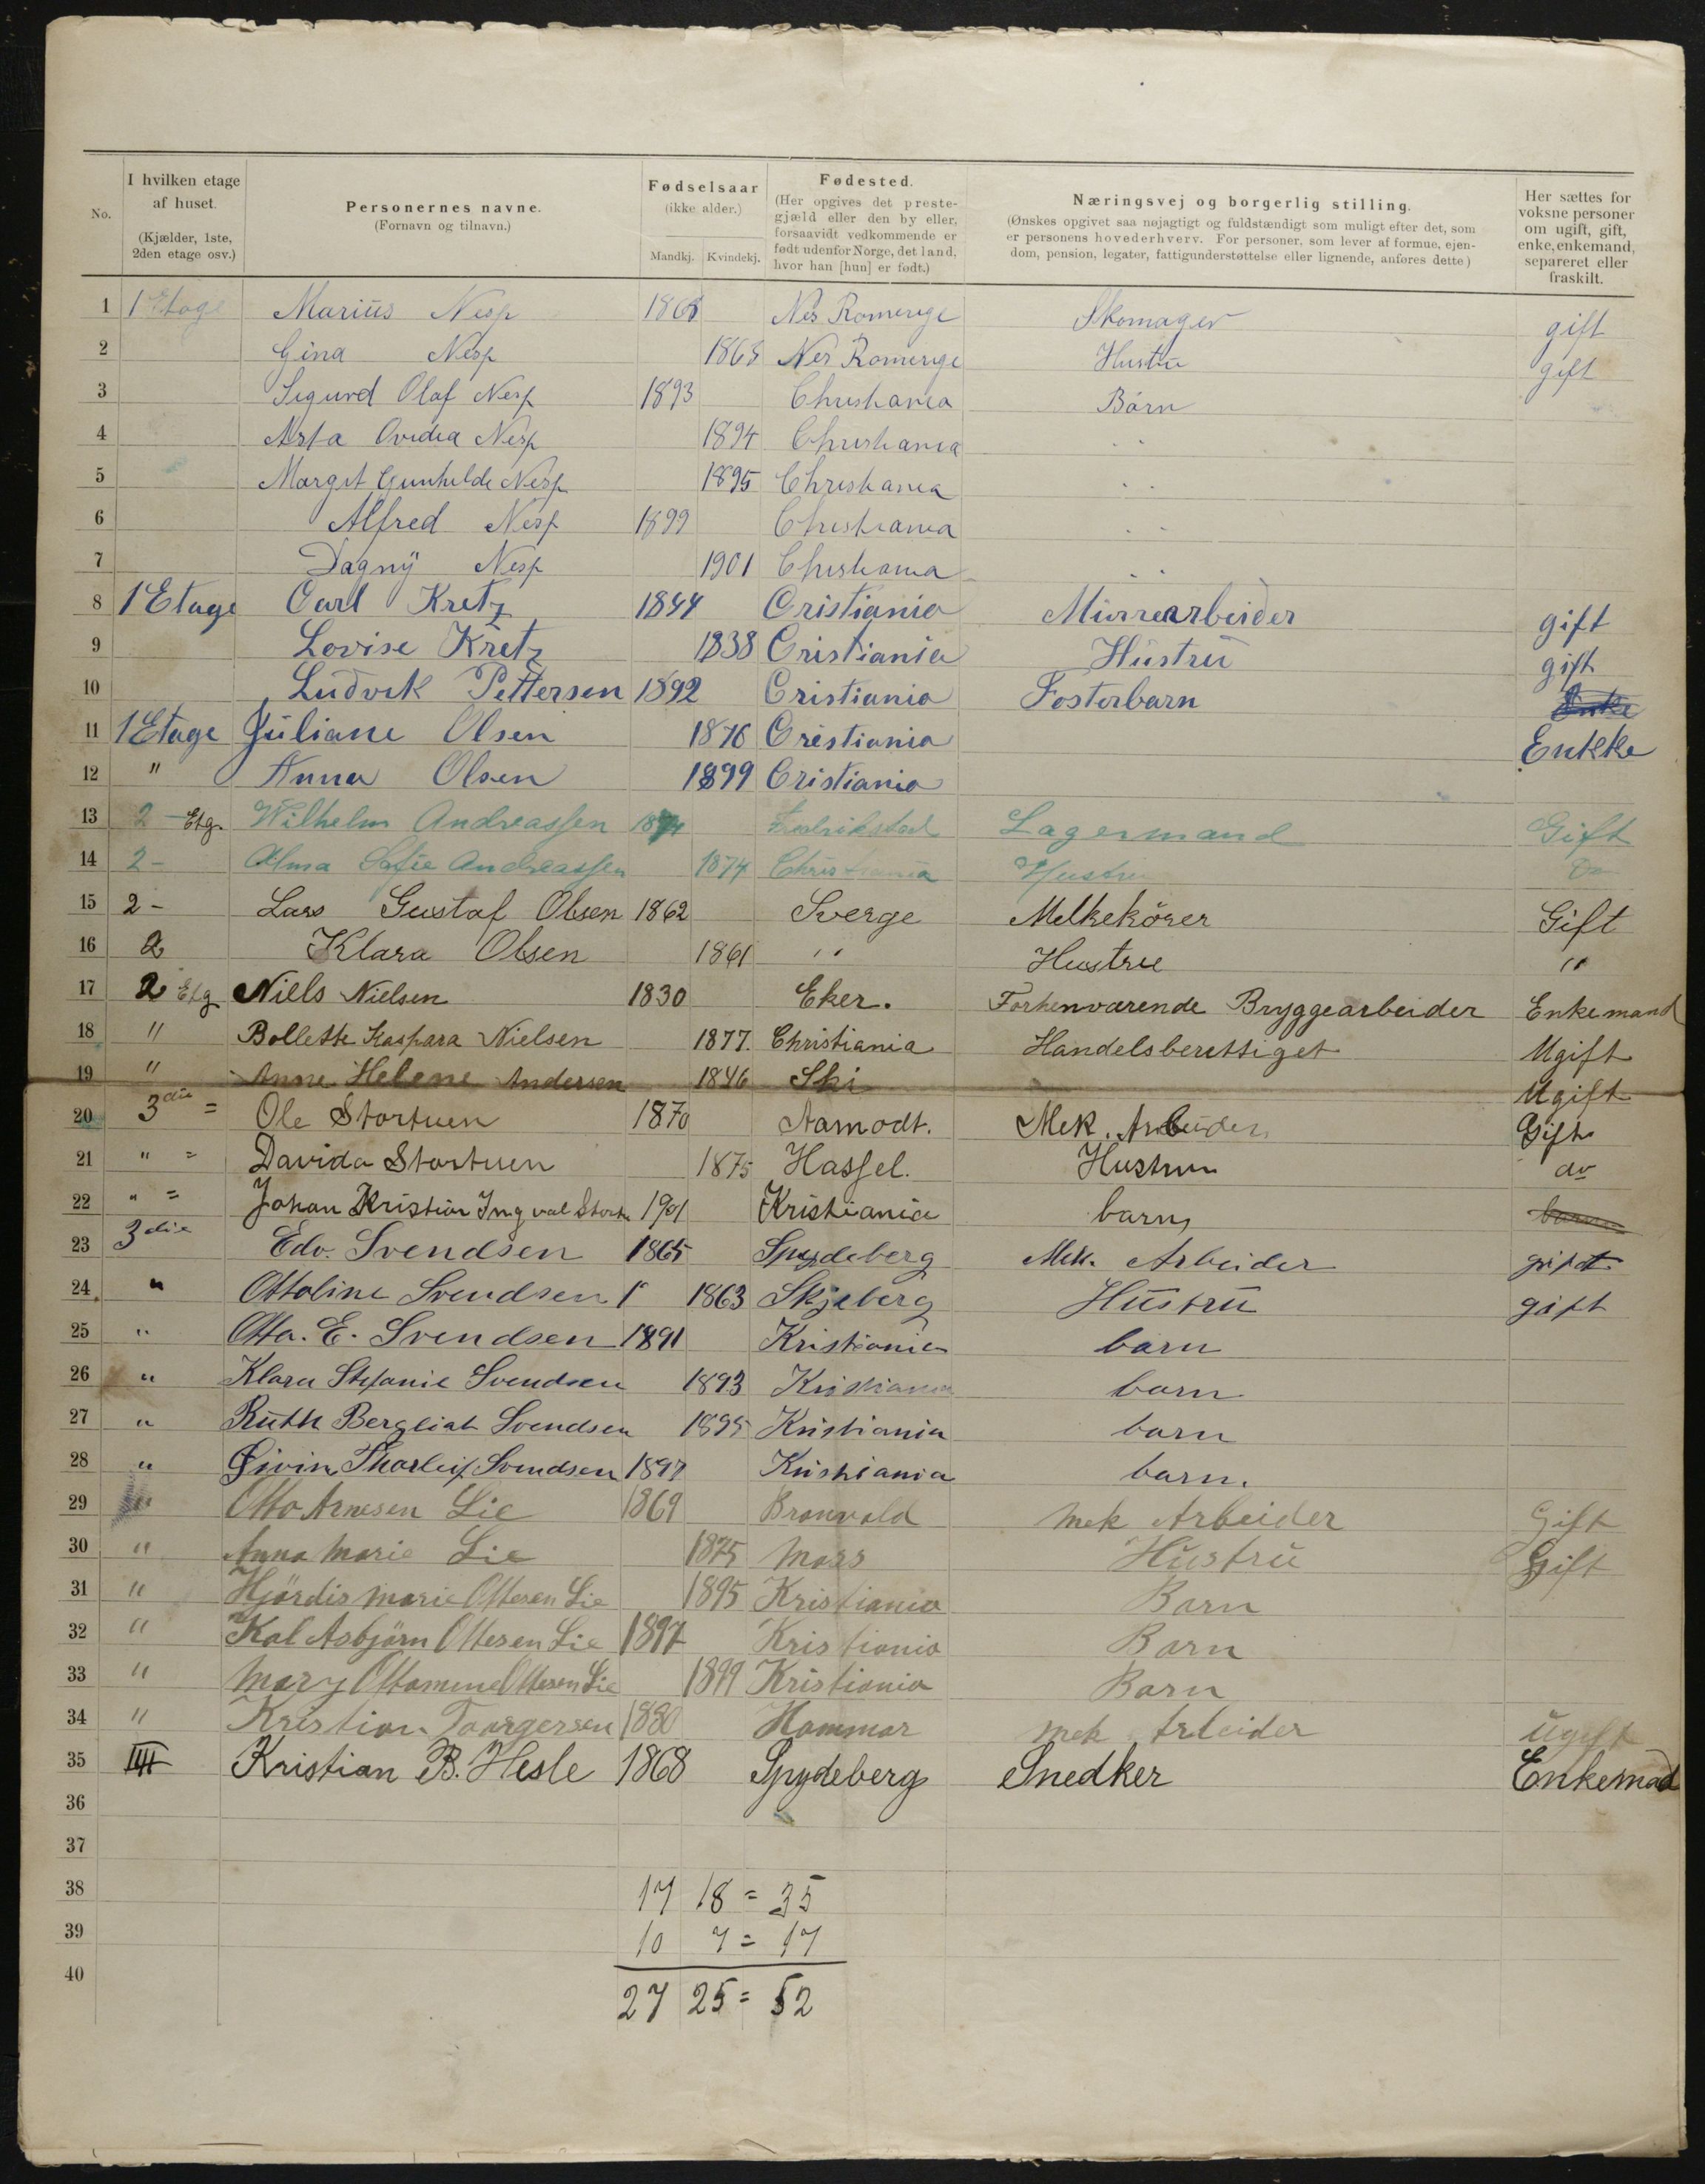 No.
I hvilken etage af huset. (Kjælder, 1ste, 2den etage osv.)
Personernes navne. (Fornavn og tilnavn.)
Fødselsaar (ikke alder.) Mandkj. Kvindekj.
Fødested. (Her opgives det prestegjæld eller den by eller, forsaavidt vedkommende er født udenfor Norge, det land, hvor han [hun] er født.)
Næringsvej og borgerlig stilling. (Ønskes opgivet saa nøjagtigt og fuldstændigt som muligt efter det, som er personens hovederhverv. For personer, som lever af formue, ejendom, pension, legater, fattigunderstøttelse eller lignende, anføres dette)
Her sættes for voksne personer om ugift, gift, enke, enkemand, separeret eller fraskilt.
1 1 Etage Marius Nesp 1868 Nes Romerige Skomager gift
2 Gina Nesp 1868 Nes Romerige Hustru gift
3 Sigurd Olaf Nesp 1893 Christiania Børn
4 Asta Ovidia Nesp 1894 Christiania " "
5 Margit Gunhilde Nesp 1895 Christiania " "
6 Alfred Nesp 1899 Christiania " "
7 Dagny Nesp 1901 Christiania " "
8 1 Etage Carl Kretz 1844 Cristiania Murrearbeider gift
9 Lovise Kretz 1838 Cristiania Hustru gift
10 Ludvik Pettersen 1892 Cristiania Fosterbarn Enke
11 1 Etage Juliane Olsen 1876 Cristiania Enkke
12 " Anna Olsen 1899 Cristiania
13 2 - Etg. Wilhelm Andreassen 1874 Fredrikstad Lagermand Gift
14 2 - Alma Sofie Andreassen 1874 Christiania Hustru Do
15 2 - Lars Gustaf Olsen 1862 Sverge Melkekörer Gift
16 2 Klara Olsen 1861 " Hustrue "
17 2 Etg Niels Nielsen 1830 Eker. Forhenværende Bryggearbeider Enkemand
18 " Bollette Kaspara Nielsen 1877. Christiania Handelsberettiget Ugift
19 " Anne Helene Andersen 1846 Ski Ugift
20 3die = Ole Stortuen 1870 Aamodt. Mek. Arbeider Gift
21 " = Davida Stortuen 1875 Hassel. Hustru do
22 " = Johan Kristian Ingval Stort 1901 Kristiania barn barn
23 3die Edv. Svendsen 1865 Spydeberg Mek. Arbeider gift
24 " Ottoline Svendsen 1863 Skjeberg Hustru gift
25 " Otto. E. Svendsen 1891 Kristiania barn
26 " Klara Stefanie Svendsen 1893 Kristiania barn
27 " Ruth Bergliot Svendsen 1895 Kristiania barn
28 " Thorleif Svendsen 1897 Kristiania barn.
29 " Otto Arnesen Lie 1869 mek Arbeider Gift
30 " Anna Marie Lie 1875 Moss Hustru Gift
31 " Hjördis Marie Ottesen Lie 1895 Kristiania Barn
32 " Kal Asbjörn Ottesen Lie 1897 Kristiania Barn
33 " Mary Ottomine Ottesen Lie 1899 Kristiania Barn
34 " Kristian Taargersen 1880 Hammar mek Arbeider Ugift
35 IIII Kristian B. Hesle 1868 Spydeberg Snedker Enkemad
36
37
38 17 18 = 35
39 10 7 = 17
40
27 25 = 52